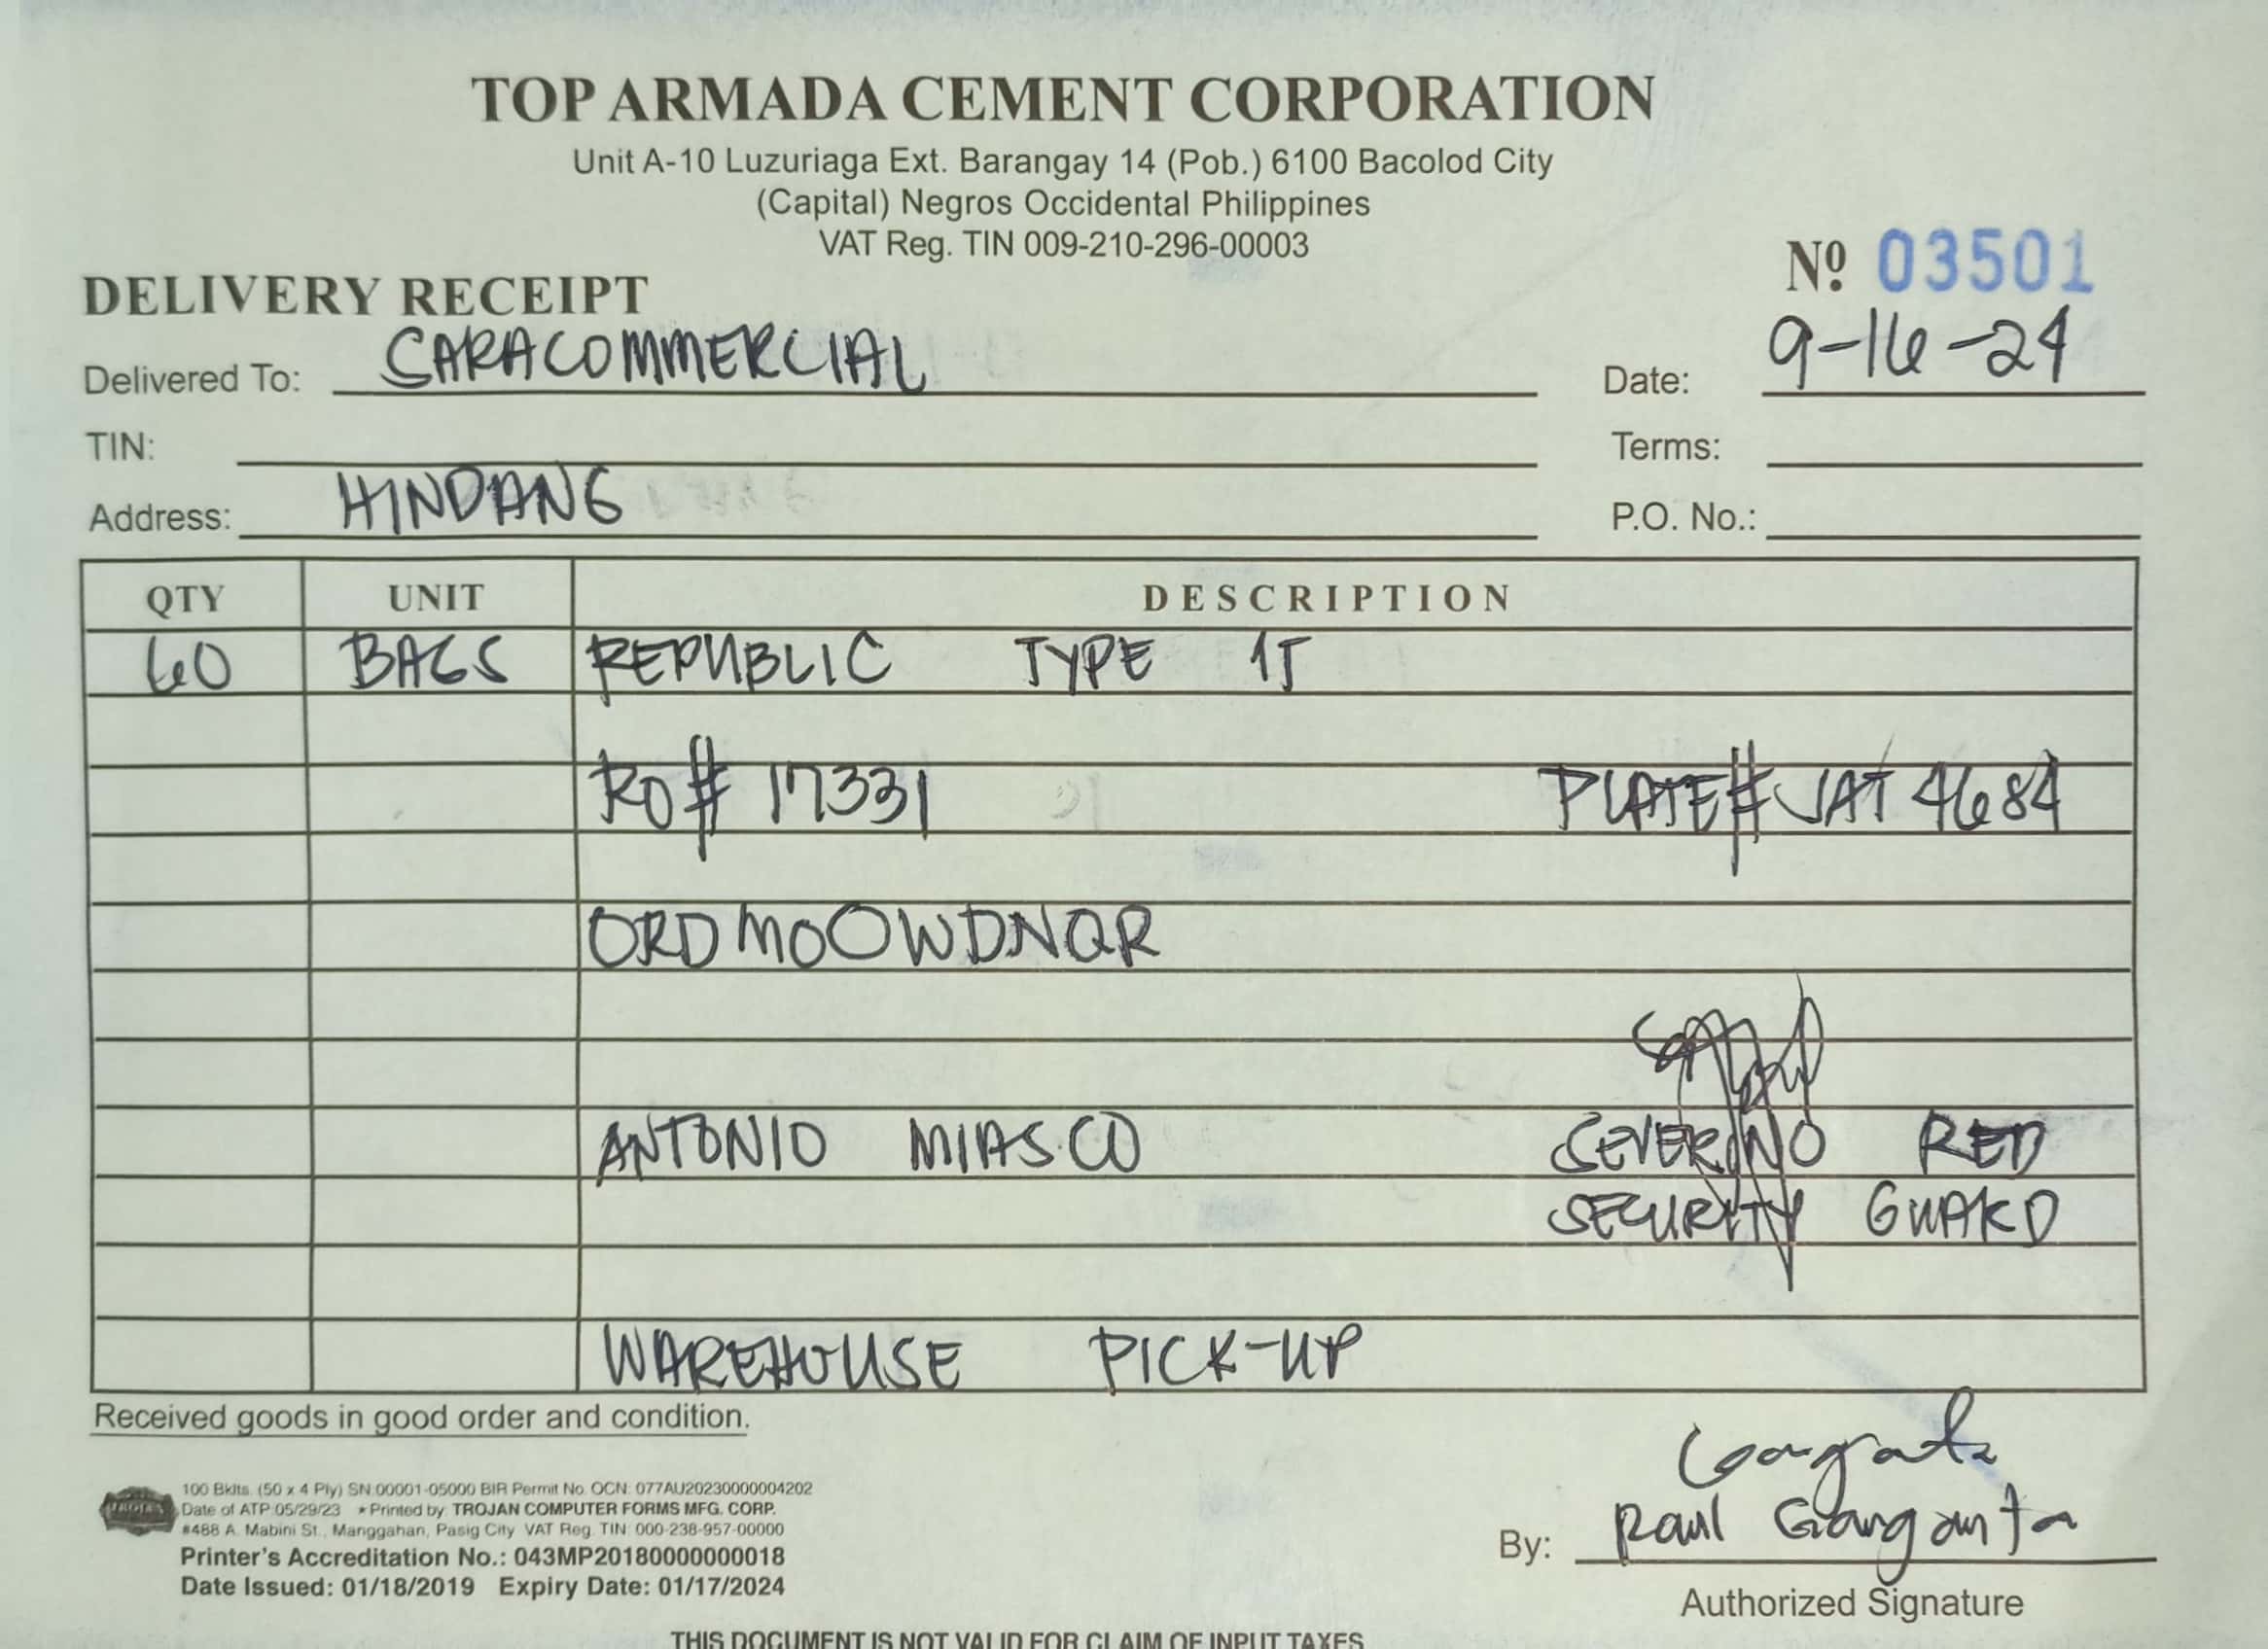 TOP ARMADA CEMENT CORPORATION
Unit A-10 Luzuriaga Ext. Barangay 14 (Pob.) 6100 Bacolod City
(Capital) Negros Occidental Philippines
VAT Reg. TIN 009-210-296-00003
Nº 03501
DELIVERY RECEIPT
Delivered To: CARACOMMERCIAL Date: 9-16-24
TIN: Terms:
Address: HINDANG P.O. No.:
QTY UNIT DESCRIPTION
60 BAGS REPUBLIC TYPE 1T
RO# 17331 PLATE# VAT 4684
ORDM0OWDNQR
ANTONIO MIASCO SEVERINO RED
SECURITY GUARD
WAREHOUSE PICK-UP
Received goods in good order and condition.
100 Bklts. (50 x 4 Ply) SN 00001-05000 BIR Permit No. OCN: 077AU20230000004202
Date of ATP 05/29/23 * Printed by: TROJAN COMPUTER FORMS MFG. CORP.
#488 A. Mabini St., Manggahan, Pasig City VAT Reg. TIN: 000-238-957-00000
Printer's Accreditation No.: 043MP20180000000018
Date Issued: 01/18/2019 Expiry Date: 01/17/2024
By: Raul Gianganta
Authorized Signature
THIS DOCUMENT IS NOT VALID FOR CLAIM OF INPUT TAXES